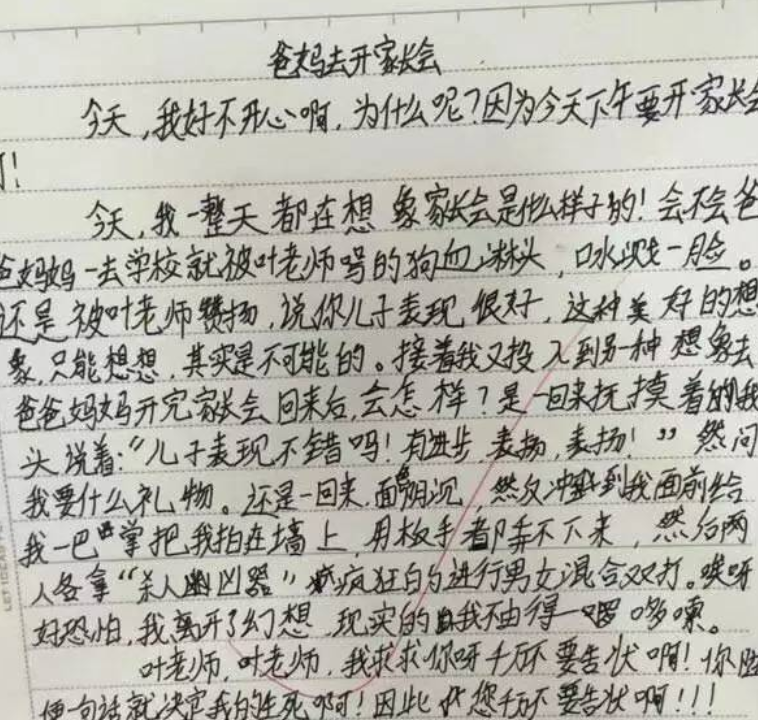 爸妈去开家长会
今天,我好不开心啊,为什么呢?因为今天下午要开家长会
啊!
今天,我一整天都在想象家长会是什么样子的!会不会爸
爸妈妈一去学校就被叶老师骂的狗血淋头,口水溅一脸。
还是被叶老师赞扬,说你儿子表现很好,这种美好的想
象,只能想想,其实是不可能的。接着我又投入到另一种想象去
爸爸妈妈开完家长会回来后,会怎样?是一回来抚摸着的我
头说着:“儿子表现不错吗!有进步,表扬,表扬!”然问
我要什么礼物。还是一回来,面色阴沉,然后冲到我面前给
我一巴掌把我拍在墙上,用板手都弄不下来,然后两
人各拿“杀人凶器”疯狂的进行男女混合双打。唉呀
好恐怕,我离开了幻想,现实的我不由得一哆嗦。
叶老师,叶老师,我求求你呀千万不要告状啊!你随
便一句话就决定我的生死啊!因此 您千万不要告状啊!!!